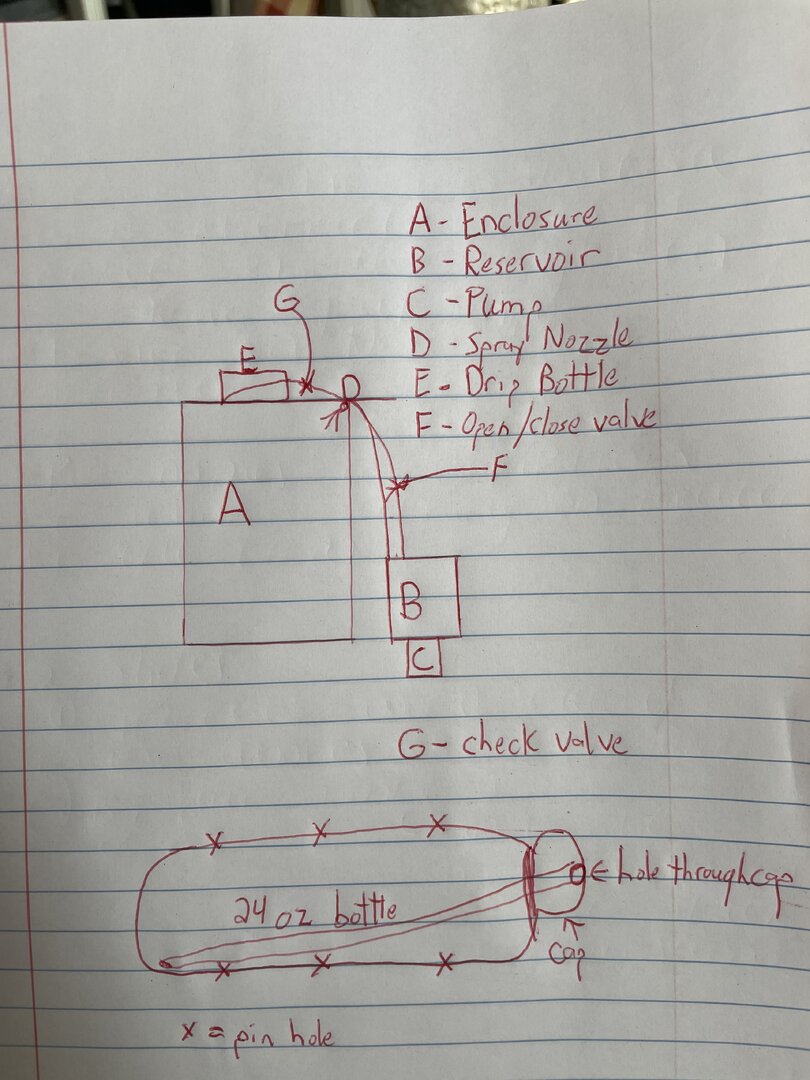 A - Enclosure
B - Reservoir
C - Pump
D - Spray Nozzle
E - Drip Bottle
F - Open/close valve
G
E
D
F
A
B
C
G - check valve
24 oz bottle
← hole through cap
↑
cap
x = pin hole